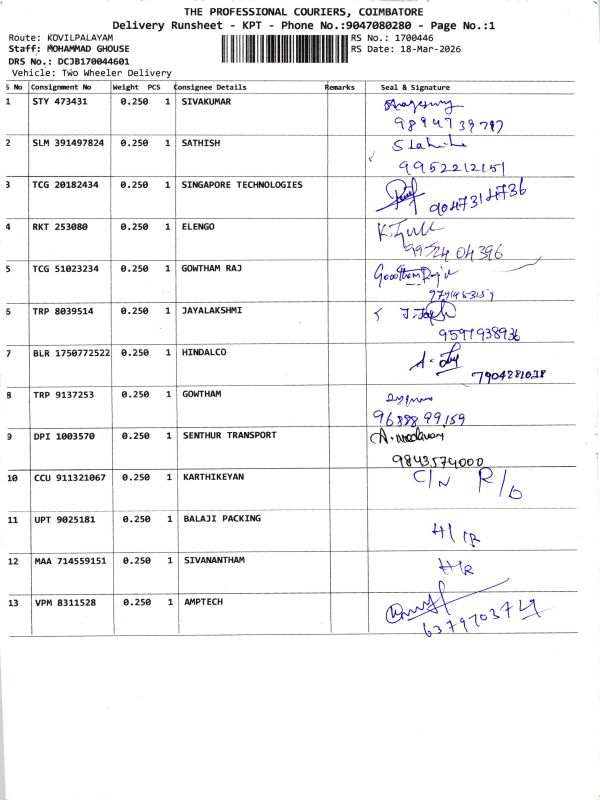 THE PROFESSIONAL COURIERS, COIMBATORE
Delivery Runsheet - KPT - Phone No.:9047080280 - Page No.:1
Route: KOVILPALAYAM RS No.: 1700446
Staff: MOHAMMAD GHOUSE RS Date: 18-Mar-2026
DRS No.: DCJB170044601
Vehicle: Two Wheeler Delivery
S No Consignment No Weight PCS Consignee Details Remarks Seal & Signature
1 STY 473431 0.250 1 SIVAKUMAR
2 SLM 391497824 0.250 1 SATHISH
9952212151
3 TCG 20182434 0.250 1 SINGAPORE TECHNOLOGIES
9047314736
4 RKT 253080 0.250 1 ELENGO
9952404396
5 TCG 51023234 0.250 1 GOWTHAM RAJ
6 TRP 8039514 0.250 1 JAYALAKSHMI
9597938936
7 BLR 1750772522 0.250 1 HINDALCO
7904281038
8 TRP 9137253 0.250 1 GOWTHAM
9688899159
9 DPI 1003570 0.250 1 SENTHUR TRANSPORT
9843574000
10 CCU 911321067 0.250 1 KARTHIKEYAN C/N R/D
11 UPT 9025181 0.250 1 BALAJI PACKING
H/R
12 MAA 714559151 0.250 1 SIVANANTHAM H/R
13 VPM 8311528 0.250 1 AMPTECH
6379703724